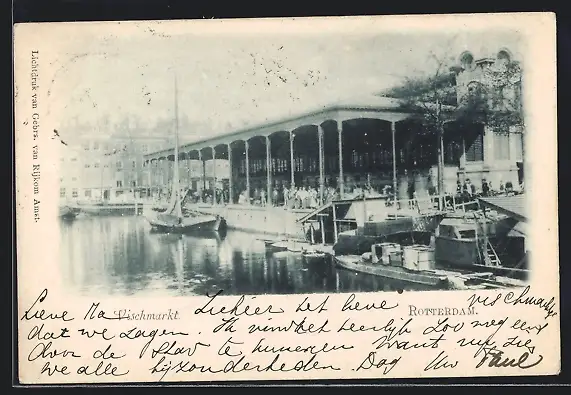 Lichtdruk van Gebrs. van Rijkom Amst.
Vischmarkt.
Rotterdam.
Lieve Ma hier het lieve vischmarktje
dat we zagen. Ik vind het heerlijk zoo nog eens
door de stad te kunnen want nu zie
we alle bijzonderheden. Dag Uw Paul